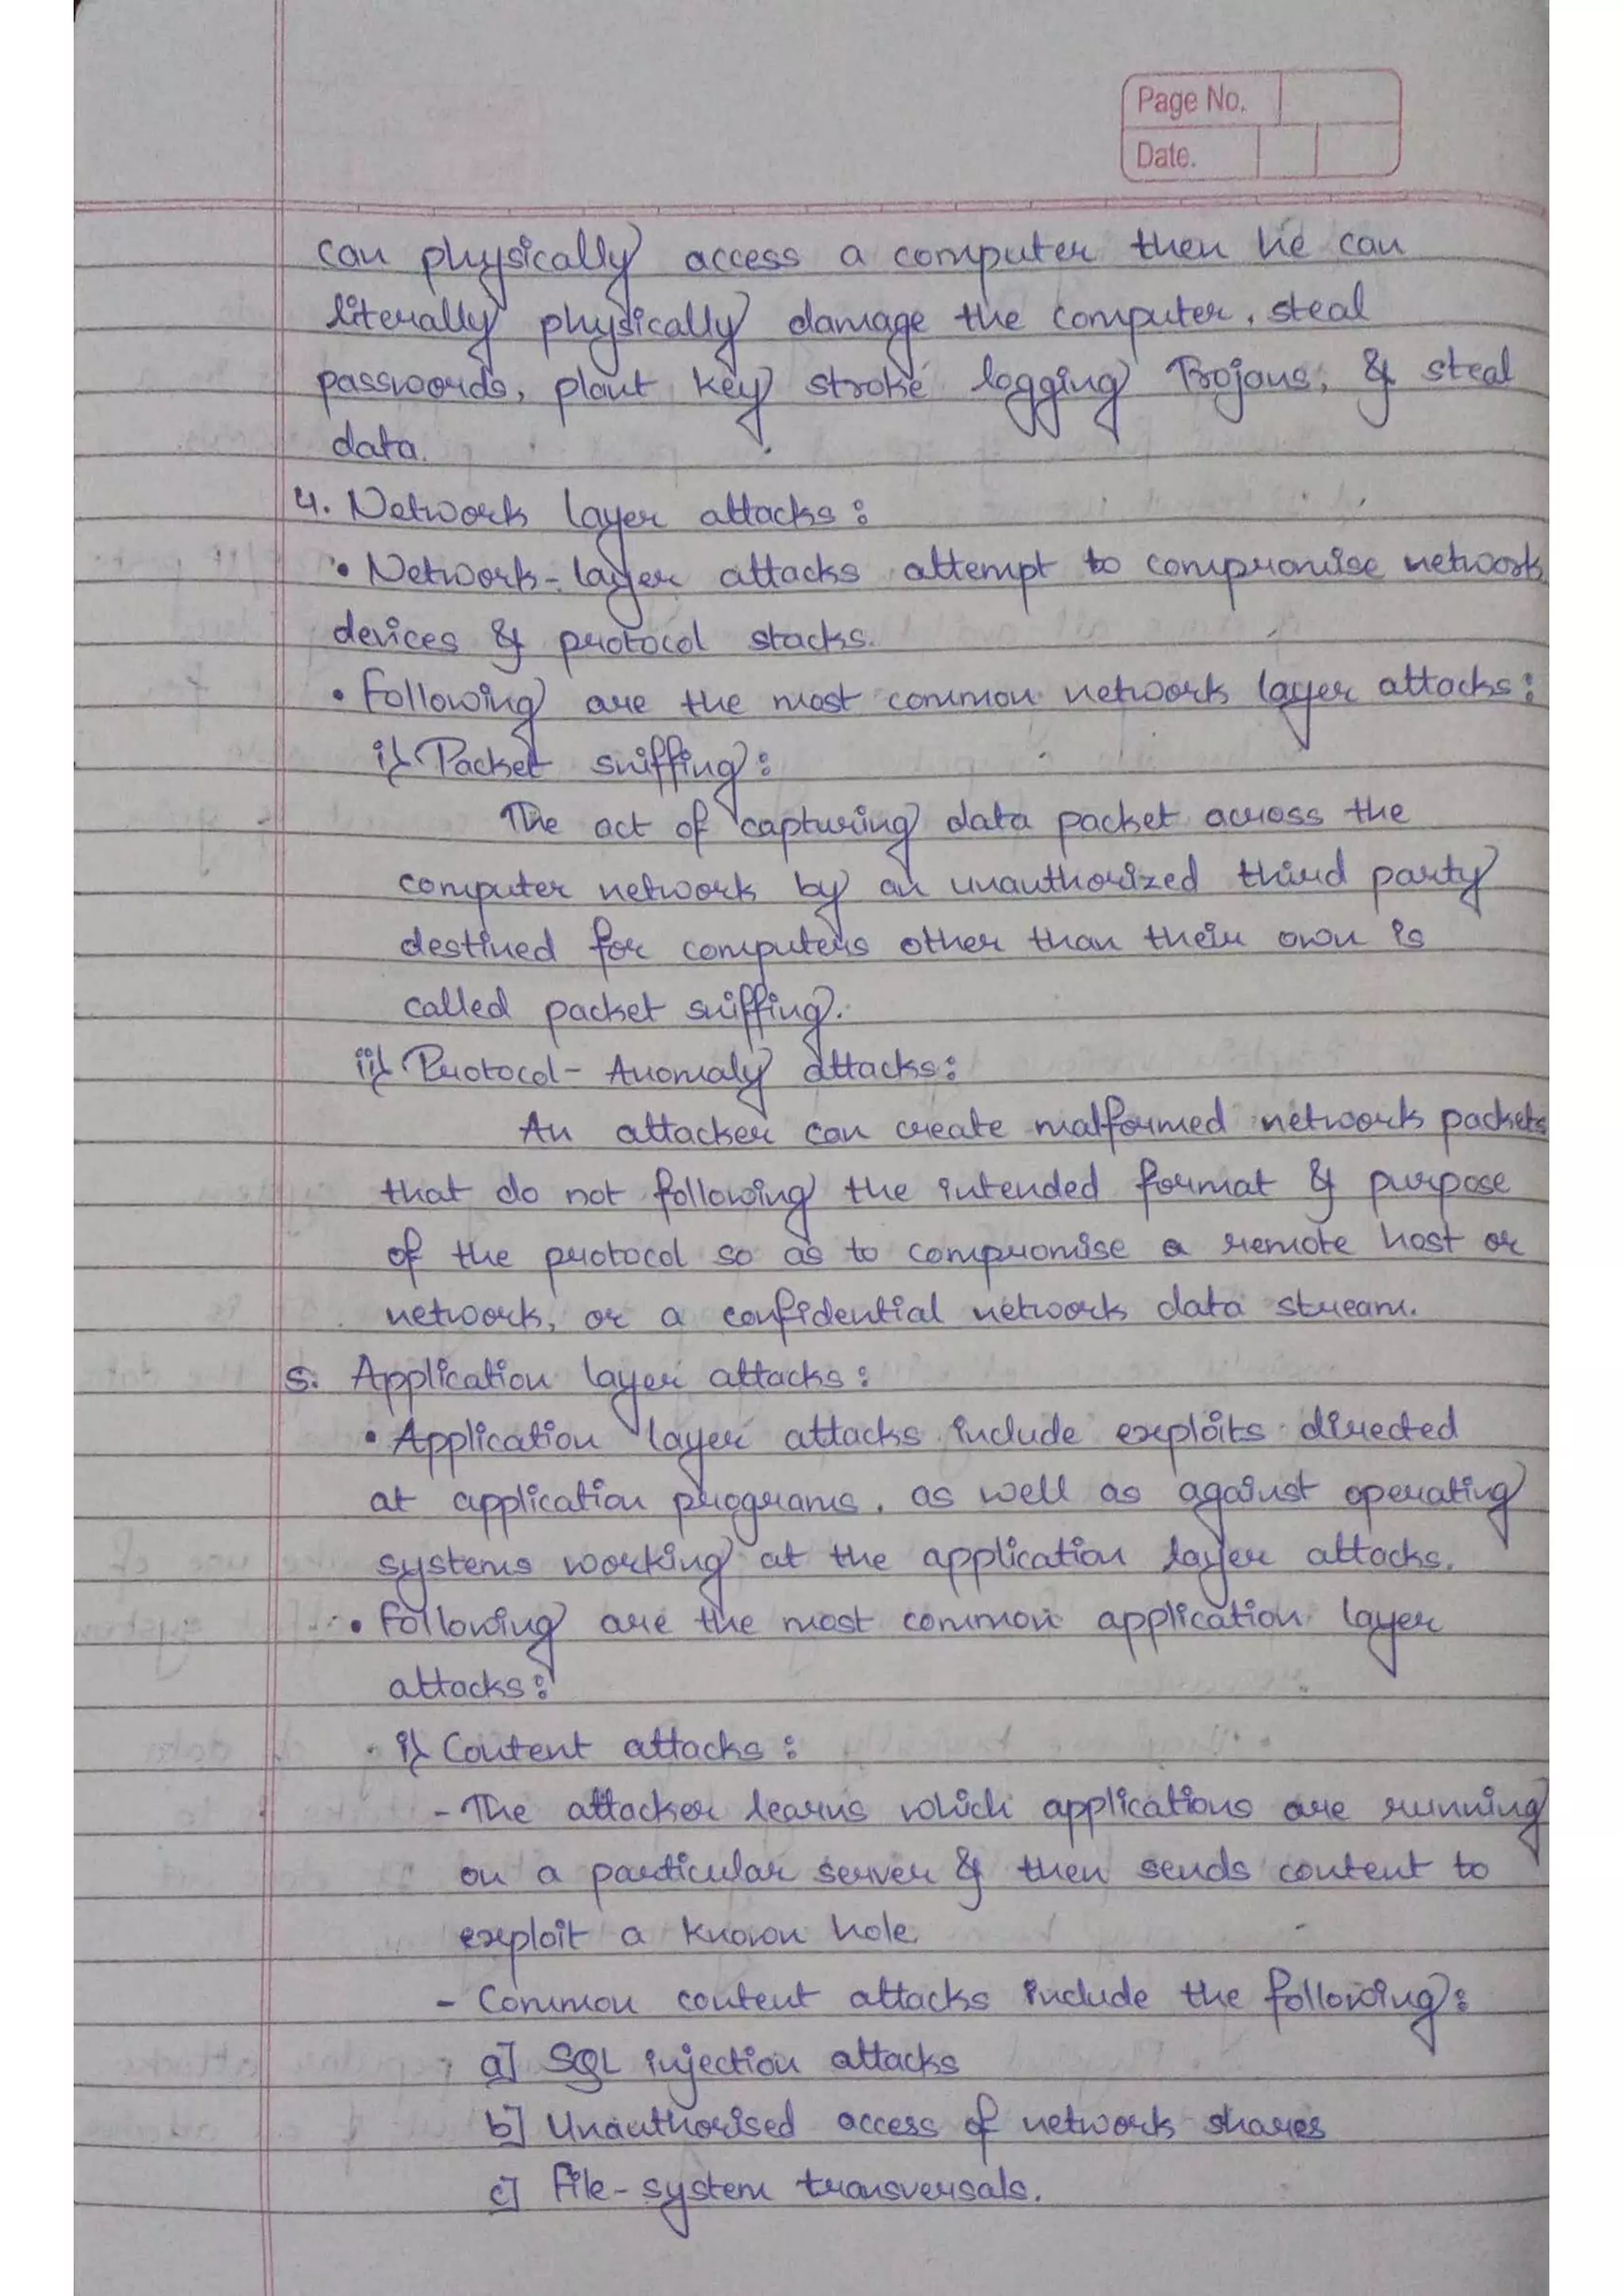 Page No.
Date.
can physically access a computer then he can
literally physically damage the computer, steal
passwords, plant key stroke logging Trojans, & steal
data.
4. Network layer attacks:
• Network-layer attacks attempt to compromise network
devices & protocol stacks.
• Following are the most common network layer attacks:
i} Packet sniffing:
The act of capturing data packet across the
computer network by an unauthorized third party
destined for computers other than their own is
called packet sniffing.
ii} Protocol-Anomaly attacks:
An attacker can create malformed network packets
that do not following the intended format & purpose
of the protocol so as to compromise a remote host or
network, or a confidential network data stream.
5. Application layer attacks:
• Application layer attacks include exploits directed
at application programs, as well as against operating
systems working at the application layer attacks.
• Following are the most common application layer
attacks:
i} Content attacks:
- The attacker learns which applications are running
on a particular server & then sends content to
exploit a known hole.
- Common content attacks include the following:
a] SQL injection attacks
b] Unauthorised access of network shares
c] File-system transversals.